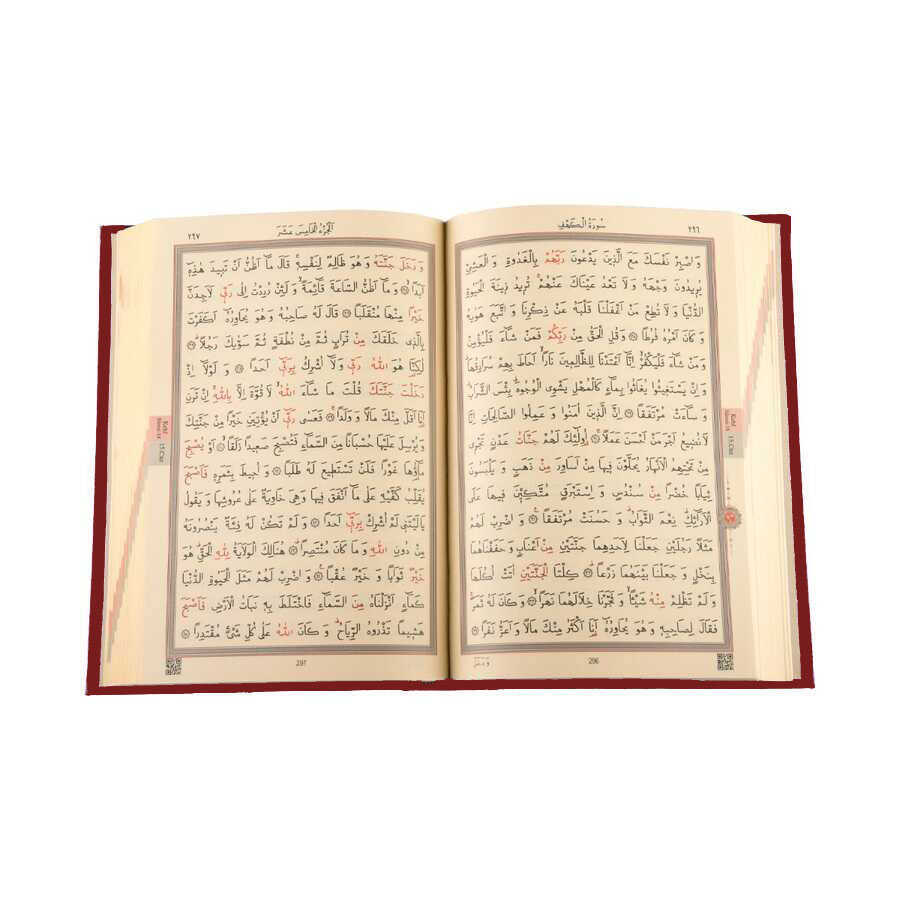 سُورَةُ الْكَهْفِ ٢٩٦
وَاصْبِرْ نَفْسَكَ مَعَ الَّذِينَ يَدْعُونَ رَبَّهُمْ بِالْغَدٰوةِ وَالْعَشِيِّ
يُرِيدُونَ وَجْهَهُ وَلَا تَعْدُ عَيْنَاكَ عَنْهُمْ تُرِيدُ زِينَةَ الْحَيٰوةِ
الدُّنْيَا وَلَا تُطِعْ مَنْ اَغْفَلْنَا قَلْبَهُ عَنْ ذِكْرِنَا وَاتَّبَعَ هَوٰيهُ
وَكَانَ اَمْرُهُ فُرُطًا وَقُلِ الْحَقُّ مِنْ رَبِّكُمْ فَمَنْ شَاءَ فَلْيُؤْمِنْ
وَمَنْ شَاءَ فَلْيَكْفُرْ اِنَّا اَعْتَدْنَا لِلظَّالِمِينَ نَارًا اَحَاطَ بِهِمْ سُرَادِقُهَا
وَاِنْ يَسْتَغِيثُوا يُغَاثُوا بِمَاءٍ كَالْمُهْلِ يَشْوِي الْوُجُوهَ بِئْسَ الشَّرَابُ
وَسَاءَتْ مُرْتَفَقًا اِنَّ الَّذِينَ اٰمَنُوا وَعَمِلُوا الصَّالِحَاتِ اِنَّا
لَا نُضِيعُ اَجْرَ مَنْ اَحْسَنَ عَمَلًا اُولٰئِكَ لَهُمْ جَنَّاتُ عَدْنٍ تَجْرِي
مِنْ تَحْتِهِمُ الْاَنْهَارُ يُحَلَّوْنَ فِيهَا مِنْ اَسَاوِرَ مِنْ ذَهَبٍ وَيَلْبَسُونَ
ثِيَابًا خُضْرًا مِنْ سُنْدُسٍ وَاِسْتَبْرَقٍ مُتَّكِئِينَ فِيهَا عَلَى
الْاَرَائِكِ نِعْمَ الثَّوَابُ وَحَسُنَتْ مُرْتَفَقًا وَاضْرِبْ لَهُمْ
مَثَلًا رَجُلَيْنِ جَعَلْنَا لِاَحَدِهِمَا جَنَّتَيْنِ مِنْ اَعْنَابٍ وَحَفَفْنَاهُمَا
بِنَخْلٍ وَجَعَلْنَا بَيْنَهُمَا زَرْعًا كِلْتَا الْجَنَّتَيْنِ اٰتَتْ اُكُلَهَا
وَلَمْ تَظْلِمْ مِنْهُ شَيْئًا وَفَجَّرْنَا خِلَالَهُمَا نَهَرًا وَكَانَ لَهُ ثَمَرٌ
فَقَالَ لِصَاحِبِهِ وَهُوَ يُحَاوِرُهُ اَنَا اَكْثَرُ مِنْكَ مَالًا وَاَعَزُّ نَفَرًا
296
Kehf
15.Cüz
٢٩٧ اَلْجُزْءُ الْخَامِسَ عَشَرَ
وَدَخَلَ جَنَّتَهُ وَهُوَ ظَالِمٌ لِنَفْسِهِ قَالَ مَا اَظُنُّ اَنْ تَبِيدَ هٰذِهِ
اَبَدًا وَمَا اَظُنُّ السَّاعَةَ قَائِمَةً وَلَئِنْ رُدِدْتُ اِلٰى رَبِّي لَاَجِدَنَّ
خَيْرًا مِنْهَا مُنْقَلَبًا قَالَ لَهُ صَاحِبُهُ وَهُوَ يُحَاوِرُهُ اَكَفَرْتَ
بِالَّذِي خَلَقَكَ مِنْ تُرَابٍ ثُمَّ مِنْ نُطْفَةٍ ثُمَّ سَوّٰيكَ رَجُلًا
لٰكِنَّا هُوَ اللّٰهُ رَبِّي وَلَا اُشْرِكُ بِرَبِّي اَحَدًا وَلَوْلَا اِذْ
دَخَلْتَ جَنَّتَكَ قُلْتَ مَا شَاءَ اللّٰهُ لَا قُوَّةَ اِلَّا بِاللّٰهِ اِنْ تَرَنِ
اَنَا اَقَلَّ مِنْكَ مَالًا وَوَلَدًا فَعَسٰى رَبِّي اَنْ يُؤْتِيَنِ خَيْرًا مِنْ جَنَّتِكَ
وَيُرْسِلَ عَلَيْهَا حُسْبَانًا مِنَ السَّمَاءِ فَتُصْبِحَ صَعِيدًا زَلَقًا اَوْ يُصْبِحَ
مَاؤُهَا غَوْرًا فَلَنْ تَسْتَطِيعَ لَهُ طَلَبًا وَاُحِيطَ بِثَمَرِهِ فَاَصْبَحَ
يُقَلِّبُ كَفَّيْهِ عَلٰى مَا اَنْفَقَ فِيهَا وَهِيَ خَاوِيَةٌ عَلٰى عُرُوشِهَا وَيَقُولُ
يَالَيْتَنِي لَمْ اُشْرِكْ بِرَبِّي اَحَدًا وَلَمْ تَكُنْ لَهُ فِئَةٌ يَنْصُرُونَهُ
مِنْ دُونِ اللّٰهِ وَمَا كَانَ مُنْتَصِرًا هُنَالِكَ الْوَلَايَةُ لِلّٰهِ الْحَقِّ هُوَ
خَيْرٌ ثَوَابًا وَخَيْرٌ عُقْبًا وَاضْرِبْ لَهُمْ مَثَلَ الْحَيٰوةِ الدُّنْيَا
كَمَاءٍ اَنْزَلْنَاهُ مِنَ السَّمَاءِ فَاخْتَلَطَ بِهِ نَبَاتُ الْاَرْضِ فَاَصْبَحَ
هَشِيمًا تَذْرُوهُ الرِّيَاحُ وَكَانَ اللّٰهُ عَلٰى كُلِّ شَيْءٍ مُقْتَدِرًا
297
Kehf
15.Cüz